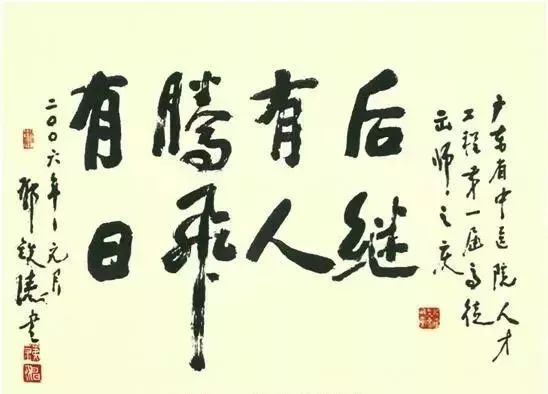 广东省中医院人才
工程第一届高徒
出师之庆
后继
有人
騰飛
有日
二〇〇六年元月
鄧铁涛书